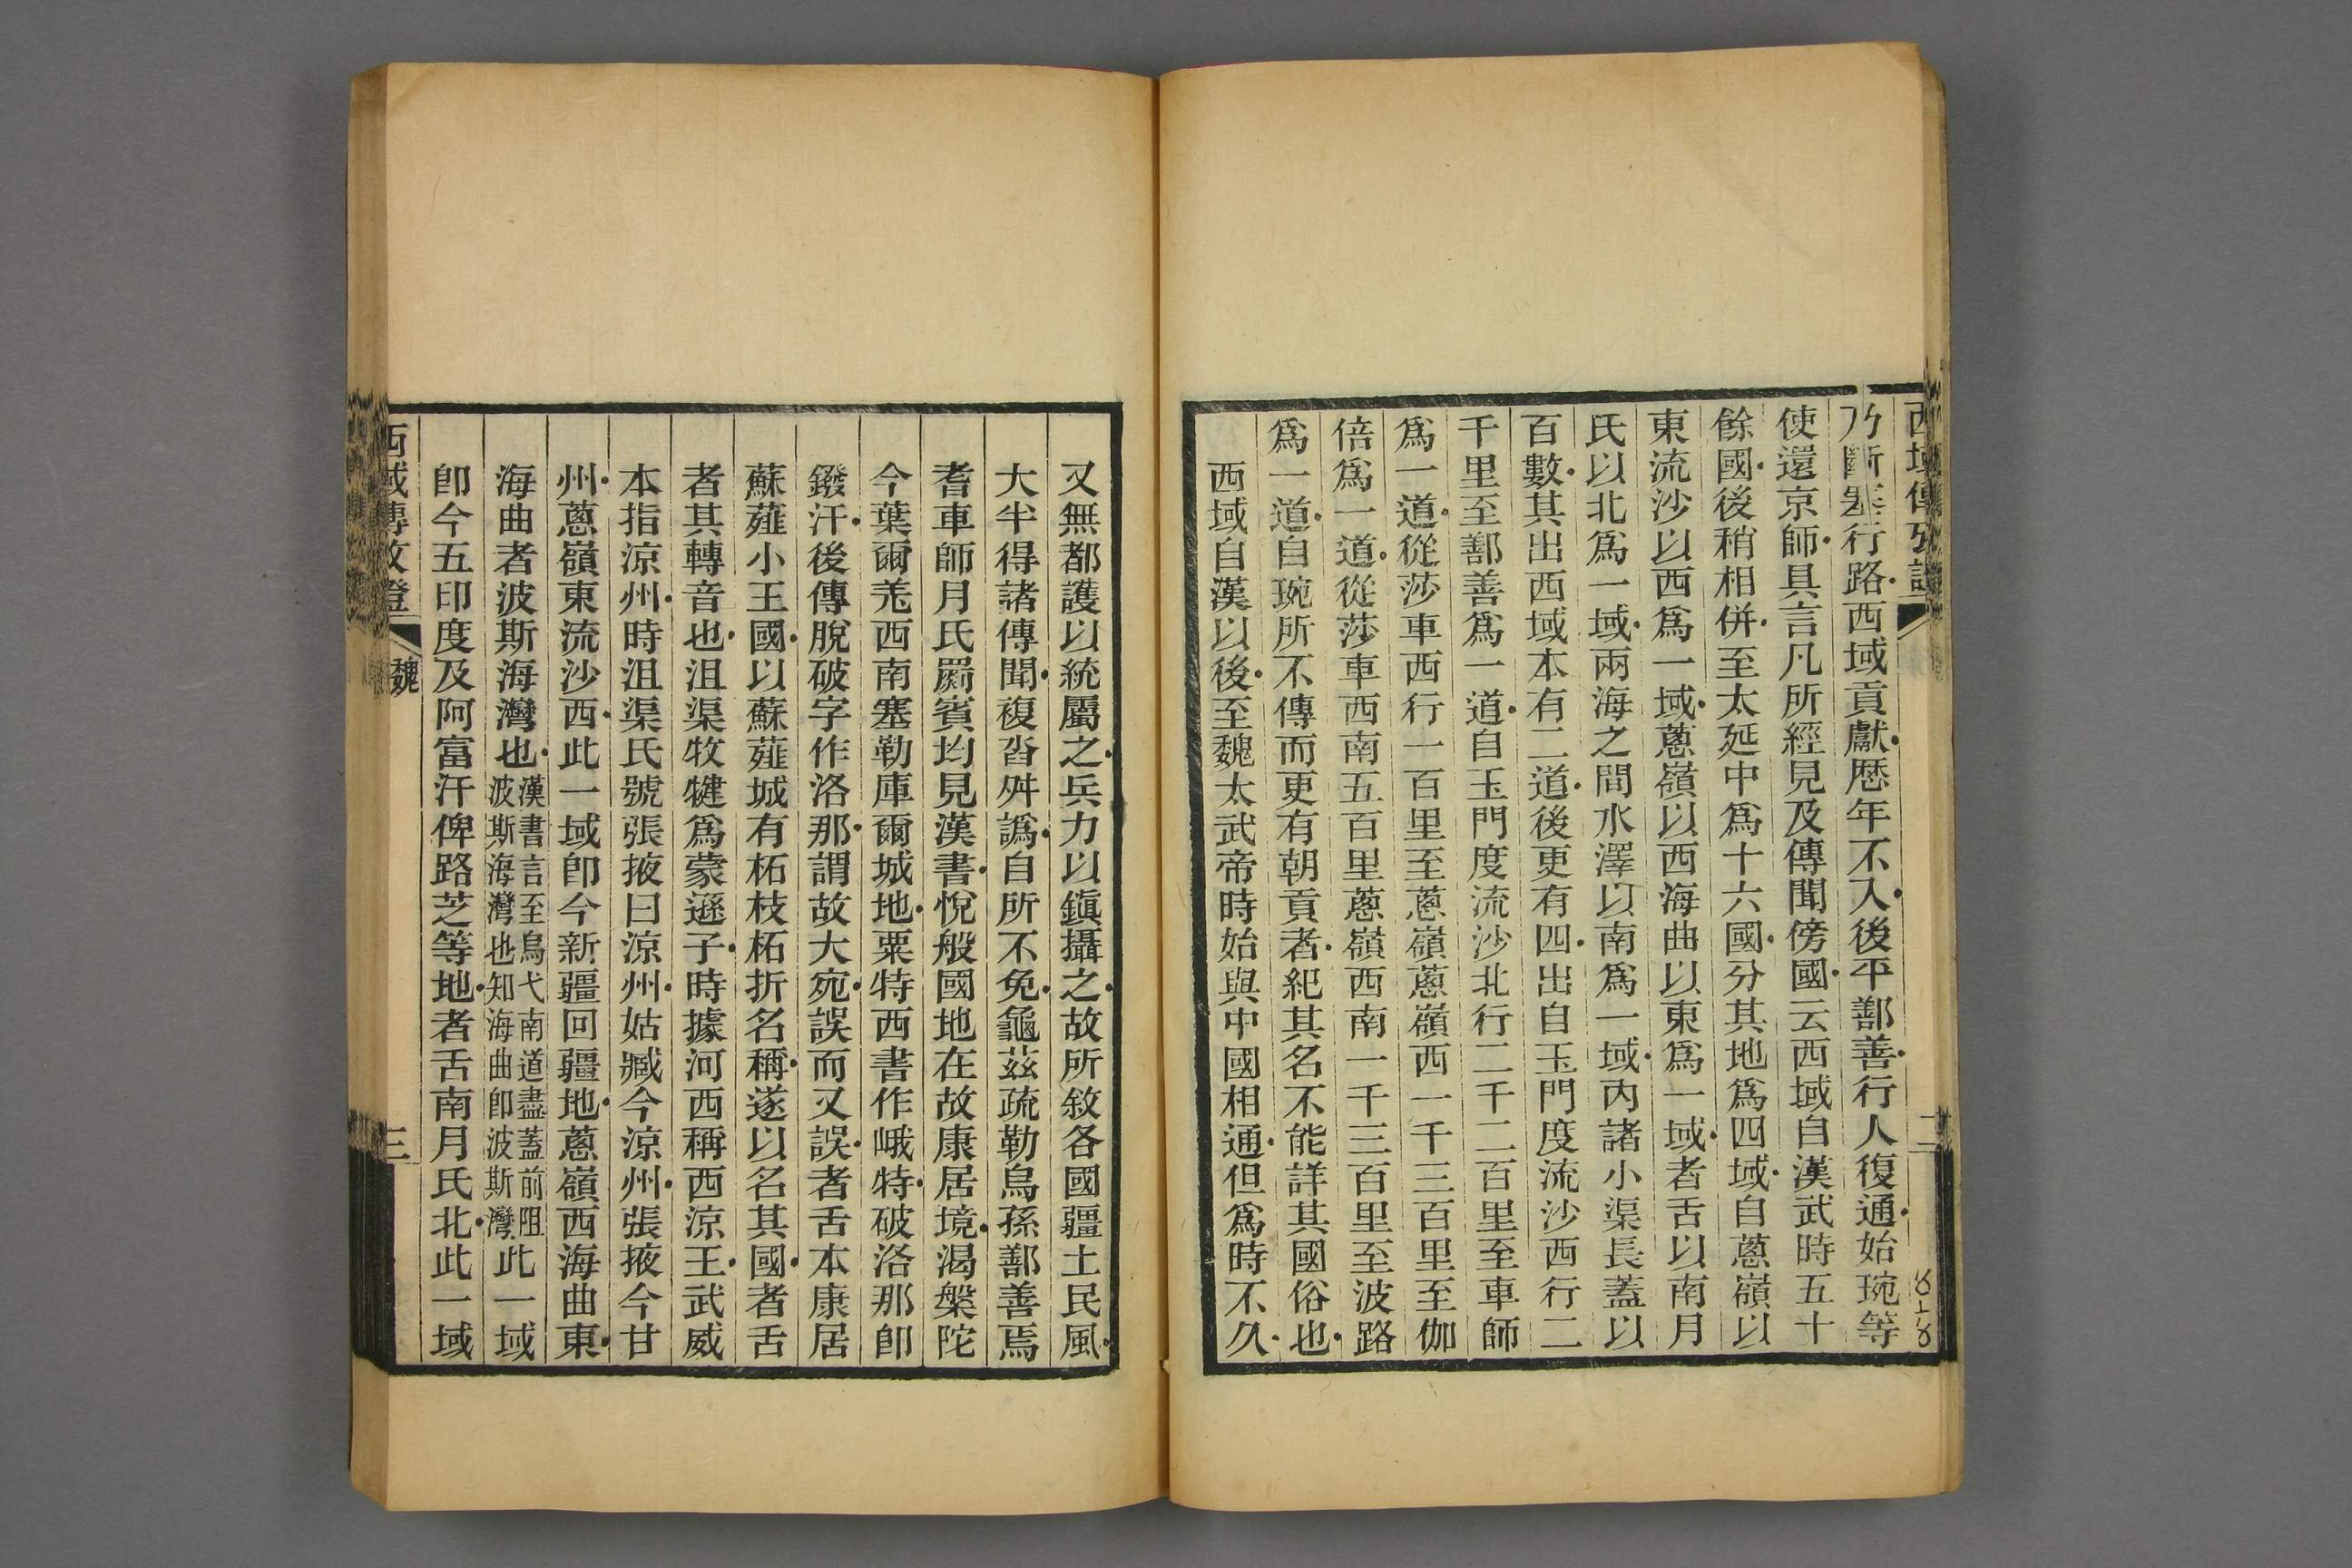 西域傳攷證
二
乃斷塞行路西域貢獻歷年不入後平鄯善行人復通始琬等
使還京師具言凡所經見及傳聞傍國云西域自漢武時五十
餘國後稍相併至太延中爲十六國分其地爲四域自蔥嶺以
東流沙以西爲一域蔥嶺以西海曲以東爲一域者舌以南月
氏以北爲一域兩海之間水澤以南爲一域內諸小渠長蓋以
百數其出西域本有二道後更有四出自玉門度流沙西行二
千里至鄯善爲一道自玉門度流沙北行二千二百里至車師
爲一道從莎車西行一百里至蔥嶺蔥嶺西一千三百里至伽
倍爲一道從莎車西南五百里蔥嶺西南一千三百里至波路
爲一道自琬所不傳而更有朝貢者紀其名不能詳其國俗也
西域自漢以後至魏太武帝時始與中國相通但爲時不久
又無都護以統屬之兵力以鎮攝之故所敘各國疆土民風
大半得諸傳聞複沓舛譌自所不免龜茲疏勒烏孫鄯善焉
耆車師月氏罽賓均見漢書悅般國地在故康居境渴槃陀
今葉爾羌西南塞勒庫爾城地粟特西書作峨特破洛那卽
鏺汗後傳脫破字作洛那謂故大宛誤而又誤者舌本康居
蘇薤小王國以蘇薤城有柘枝柘折名稱遂以名其國者舌
者其轉音也沮渠牧犍爲蒙遜子時據河西稱西涼王武威
本指涼州時沮渠氏號張掖曰涼州姑臧今涼州張掖今甘
州蔥嶺東流沙西此一域卽今新疆回疆地蔥嶺西海曲東
海曲者波斯海灣也漢書言至烏弋南道盡蓋前阻波斯海灣也知海曲卽波斯灣此一域
卽今五印度及阿富汗俾路芝等地者舌南月氏北此一域
西域傳攷證
魏
三